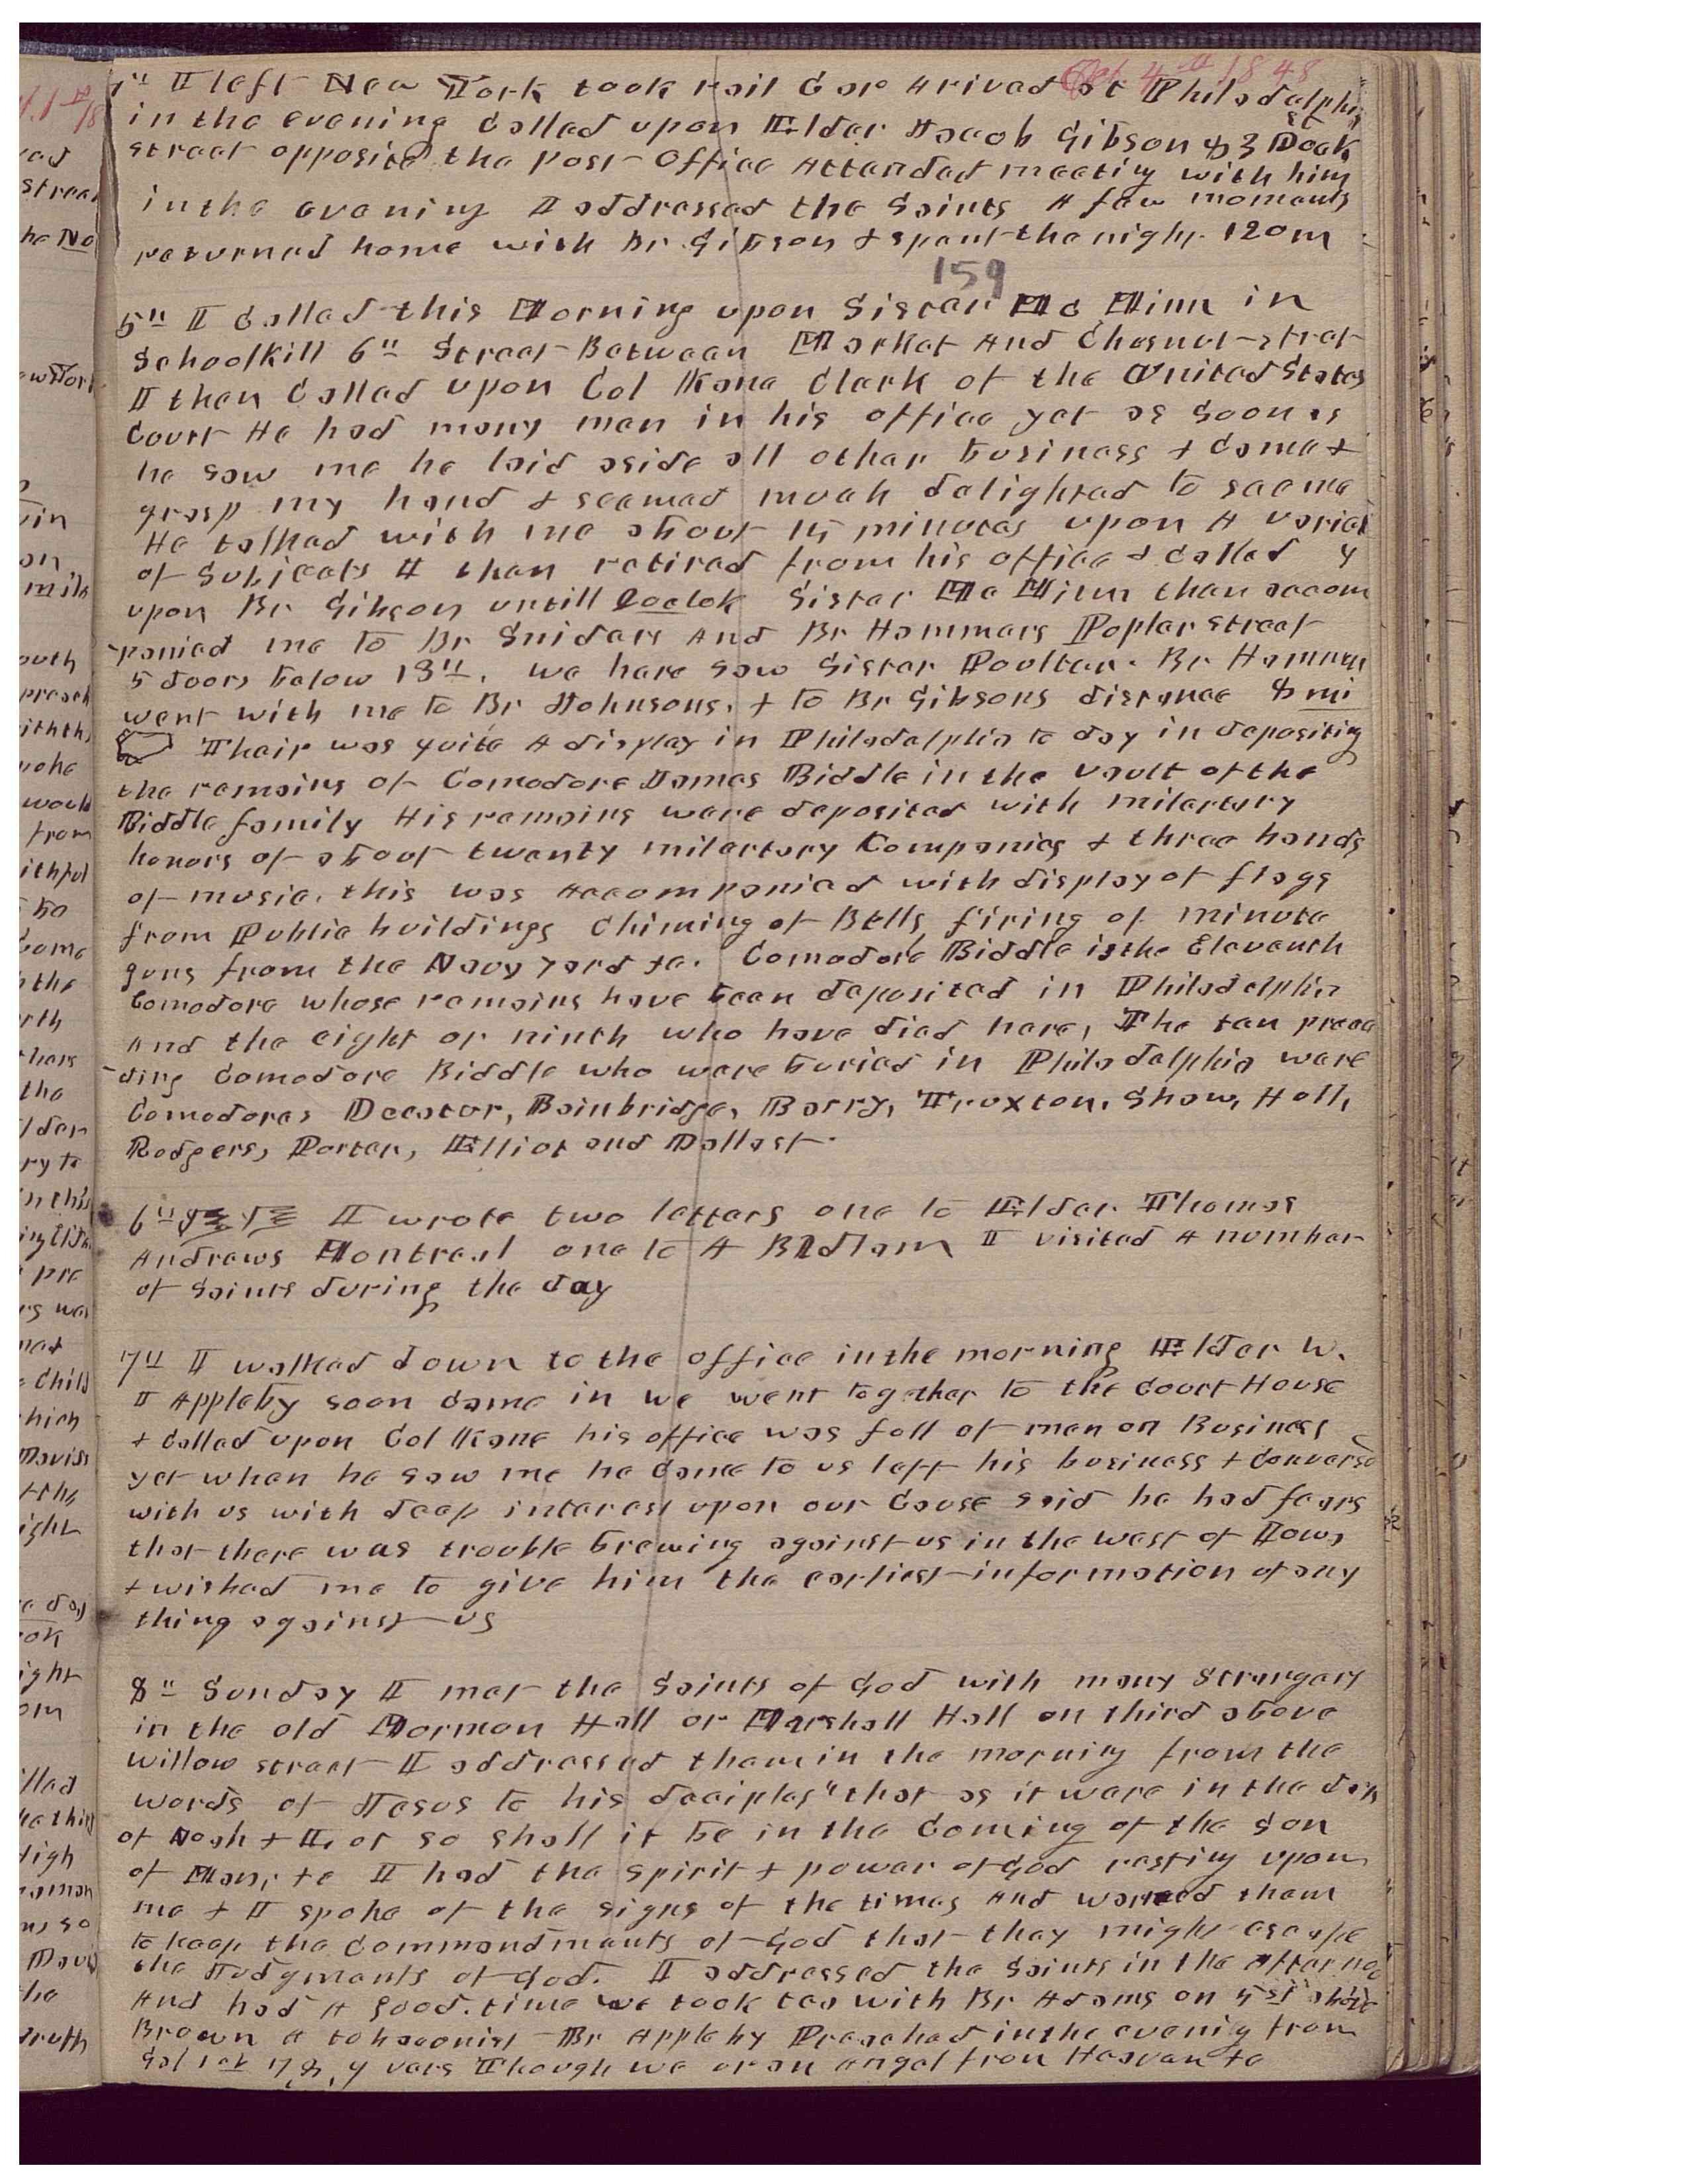 Oct. 4th 1848
I left New York took rail Car Arived at Philadelphi
in the evening Called upon Elder Jacob Gibson 83 Dock
st
street opposite the post Office Attended meeting with him
in the evening I addressed the Saints A few moments
returned home with Br Gibson & spent the night. 120 m
159
5th I Called this Morning upon Sister Mc Minn in
Schoolkill 6th Street Between Market And Chesnut stret
I then Called upon Col Kane Clark of the United States
Court He had many men in his office yet as soon as
he saw me he laid aside all other business & Came &
grasp my hand & seemed much delighted to see me
He talked with me about 15 minutes upon A variet
of Subjects I then retired from his office & called y
upon Br Gibson untill oclok Sister Mc Minn then accom
-panied me to Br Sniders And Br Hammers Poplar street
5 doors below 13th. we here saw Sister Poulter. Br Hammer
went with me to Br Johnsons, & to Br Gibsons distance 8 mi
Thair was quite A display in Philadelphia to day in depositing
the remains of Comodore James Biddle in the vault of the
Biddle family His remains were deposited with milartary
honors of about twenty milartary Companies & three bands
of music. this was Accompanied with display of flags
from Public buildings Chiming of Bells firing of minute
guns from the Navy yard &c. Comodore Biddle is the Eleventh
Comodore whose remains have been deposited in Philadelphia
And the eight or ninth who have died here, The ten prece
-ding Comodore Biddle who were buried in Philadelphia were
Comodores Decatur, Bainbridge, Barry, Truxton, Shaw, Hull,
Rodgers, Porter, Elliot and Dallast.
6th I wrote two letters one to Elder Thomas
Andrews Montreal one to A Badlam I visited A number
of Saints during the day
7th I walked down to the office in the morning Elder W.
I Appleby soon came in we went together to the Court House
& Called upon Col Kane his office was full of men on Business
yet when he saw me he came to us left his business & Conversd
with us with deep interest upon our Cause said he had fears
that there was trouble brewing against us in the west of Iowa
& wished me to give him the earliest information of any
thing against us
8th Sunday I met the Saints of God with many Strangers
in the old Mormon Hall or Marshall Hall on third above
Willow street I addressed them in the morning from the
words of Jesus to his deciples "that as it were in the days
of Noah & Lot so shall it be in the Coming of the Son
of Man, &c I had the spirit & power of God resting upon
me & I spoke of the signs of the times And warned them
to keep the Commandments of God that they might escape
the Judgments of God. I addressed the Saints in the afternoo
And had A good time we took tea with Br Adams on 5st above
Brown A tobaconist Br Appleby Preached in the evenig from
Gal 1st 7, 8, 9 vers Though we or an Angel from Heavan &c